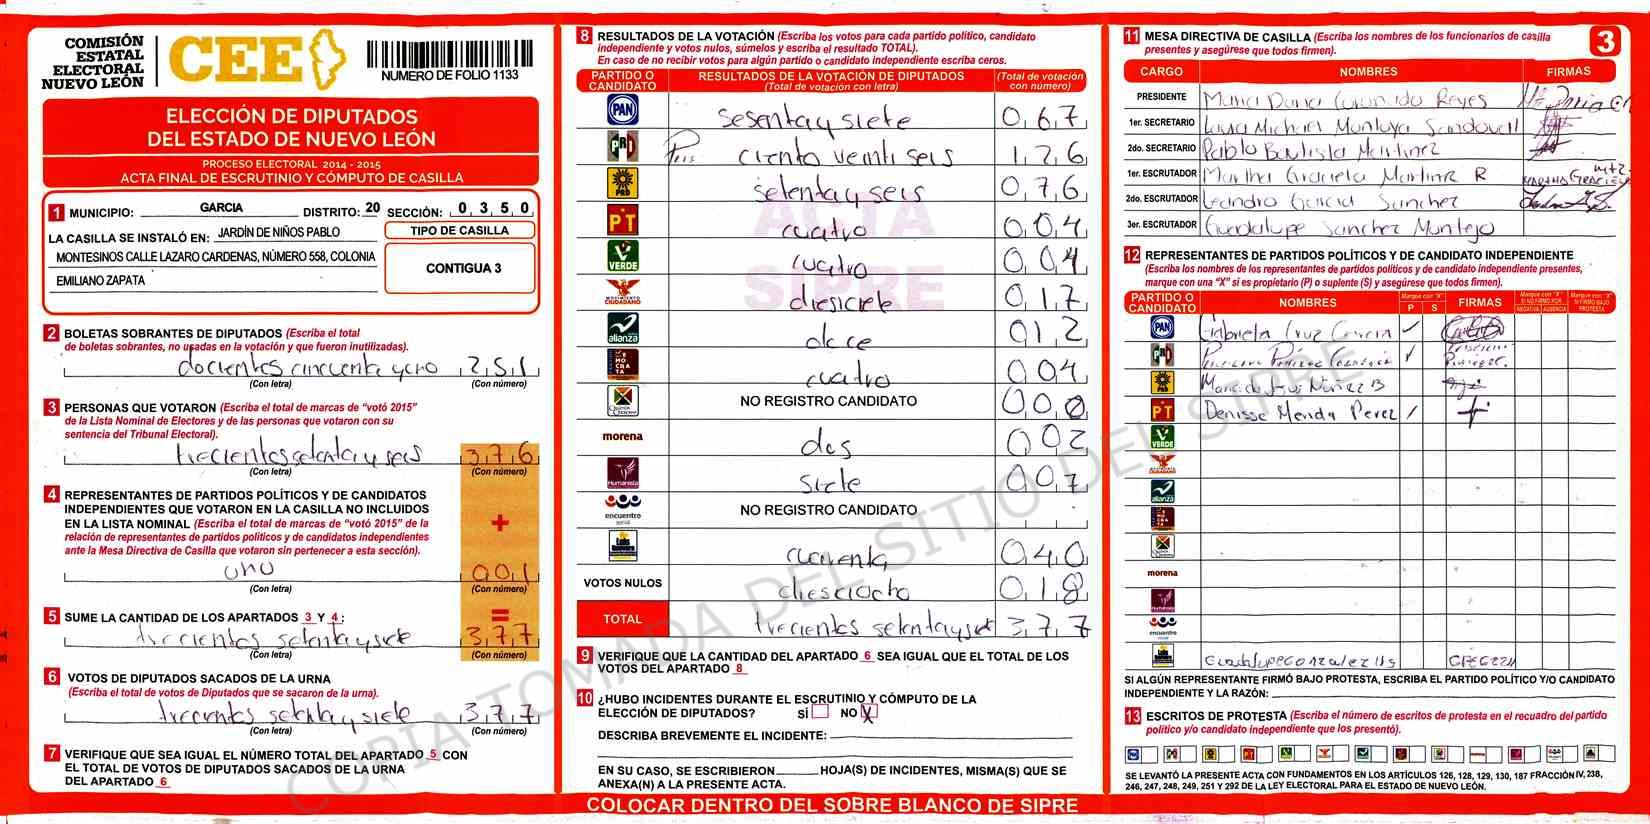 COMISIÓN
ESTATAL
ELECTORAL
NUEVO LEÓN
CEE
NUMERO DE FOLIO 1133
ELECCIÓN DE DIPUTADOS
DEL ESTADO DE NUEVO LEÓN
PROCESO ELECTORAL 2014 - 2015
ACTA FINAL DE ESCRUTINIO Y CÓMPUTO DE CASILLA
1 MUNICIPIO: GARCIA DISTRITO: 20 SECCIÓN: 0 3 5 0
LA CASILLA SE INSTALÓ EN: JARDÍN DE NIÑOS PABLO
MONTESINOS CALLE LAZARO CARDENAS, NÚMERO 558, COLONIA
EMILIANO ZAPATA
TIPO DE CASILLA
CONTIGUA 3
2 BOLETAS SOBRANTES DE DIPUTADOS (Escriba el total
de boletas sobrantes, no usadas en la votación y que fueron inutilizadas).
docientos cincuenta y uno 2 5 1
(Con letra) (Con número)
3 PERSONAS QUE VOTARON (Escriba el total de marcas de "votó 2015"
de la Lista Nominal de Electores y de las personas que votaron con su
sentencia del Tribunal Electoral).
trecientos setenta y seis 3 7 6
(Con letra) (Con número)
4 REPRESENTANTES DE PARTIDOS POLÍTICOS Y DE CANDIDATOS
INDEPENDIENTES QUE VOTARON EN LA CASILLA NO INCLUIDOS
EN LA LISTA NOMINAL (Escriba el total de marcas de "votó 2015" de la
relación de representantes de partidos políticos y de candidatos independientes
ante la Mesa Directiva de Casilla que votaron sin pertenecer a esta sección).
+
uno 0 0 1
(Con letra) (Con número)
=
5 SUME LA CANTIDAD DE LOS APARTADOS 3 Y 4:
trecientos setenta y siete 3 7 7
(Con letra) (Con número)
6 VOTOS DE DIPUTADOS SACADOS DE LA URNA
(Escriba el total de votos de Diputados que se sacaron de la urna).
trecientos setenta y siete 3 7 7
(Con letra) (Con número)
7 VERIFIQUE QUE SEA IGUAL EL NÚMERO TOTAL DEL APARTADO 5 CON
EL TOTAL DE VOTOS DE DIPUTADOS SACADOS DE LA URNA
DEL APARTADO 6
8 RESULTADOS DE LA VOTACIÓN (Escriba los votos para cada partido político, candidato
independiente y votos nulos, súmelos y escriba el resultado TOTAL).
En caso de no recibir votos para algún partido o candidato independiente escriba ceros.
PARTIDO O CANDIDATO RESULTADOS DE LA VOTACIÓN DE DIPUTADOS (Total de votación con letra) (Total de votación con número)
PAN sesenta y siete 0 6 7
PRI ciento veinti seis 1 2 6
PRD setenta y seis 0 7 6
PT cuatro 0 0 4
VERDE cuatro 0 0 4
MOVIMIENTO CIUDADANO diesiciete 0 1 7
alianza doce 0 1 2
DEMOCRATA cuatro 0 0 4
NO REGISTRO CANDIDATO 0 0 0
morena dos 0 0 2
Humanista siete 0 0 7
encuentro social NO REGISTRO CANDIDATO
cuarenta 0 4 0
VOTOS NULOS diesciocho 0 1 8
TOTAL trecientos setenta y siete 3 7 7
9 VERIFIQUE QUE LA CANTIDAD DEL APARTADO 6 SEA IGUAL QUE EL TOTAL DE LOS
VOTOS DEL APARTADO 8
10 ¿HUBO INCIDENTES DURANTE EL ESCRUTINIO Y CÓMPUTO DE LA
ELECCIÓN DE DIPUTADOS? SÍ NO X
DESCRIBA BREVEMENTE EL INCIDENTE:
EN SU CASO, SE ESCRIBIERON HOJA(S) DE INCIDENTES, MISMA(S) QUE SE
ANEXA(N) A LA PRESENTE ACTA.
COLOCAR DENTRO DEL SOBRE BLANCO DE SIPRE
11 MESA DIRECTIVA DE CASILLA (Escriba los nombres de los funcionarios de casilla
presentes y asegúrese que todos firmen).
3
CARGO NOMBRES FIRMAS
PRESIDENTE Maria Coronado Reyes
1er. SECRETARIO Michael Montoya Sandovall
2do. SECRETARIO Pablo Bautista Martinez
1er. ESCRUTADOR Martha Graciela Martinez R
2do. ESCRUTADOR Leandro Garcia Sanchez
3er. ESCRUTADOR Guadalupe Sanchez Montejo
12 REPRESENTANTES DE PARTIDOS POLÍTICOS Y DE CANDIDATO INDEPENDIENTE
(Escriba los nombres de los representantes de partidos políticos y de candidato independiente presentes,
marque con una "X" si es propietario (P) o suplente (S) y asegúrese que todos firmen).
PARTIDO O CANDIDATO NOMBRES Marque con "X" P S FIRMAS Marque con "X" SI NO FIRMÓ POR: NEGATIVA AUSENCIA Marque con "X" SI FIRMÓ BAJO PROTESTA
PAN Gabriela Cruz Garcia
PRI
PRD
PT Denisse Menda Perez
VERDE
alianza
morena
Humanista
encuentro social
Guadalupe Gonzalez
SI ALGÚN REPRESENTANTE FIRMÓ BAJO PROTESTA, ESCRIBA EL PARTIDO POLÍTICO Y/O CANDIDATO
INDEPENDIENTE Y LA RAZÓN:
13 ESCRITOS DE PROTESTA (Escriba el número de escritos de protesta en el recuadro del partido
político y/o candidato independiente que los presentó).
SE LEVANTÓ LA PRESENTE ACTA CON FUNDAMENTOS EN LOS ARTÍCULOS 126, 128, 129, 130, 187 FRACCIÓN IV, 238,
246, 247, 248, 249, 251 Y 292 DE LA LEY ELECTORAL PARA EL ESTADO DE NUEVO LEÓN.
ACTA
SIPRE
COPIA TOMADA DEL SITIO DEL SIPRE